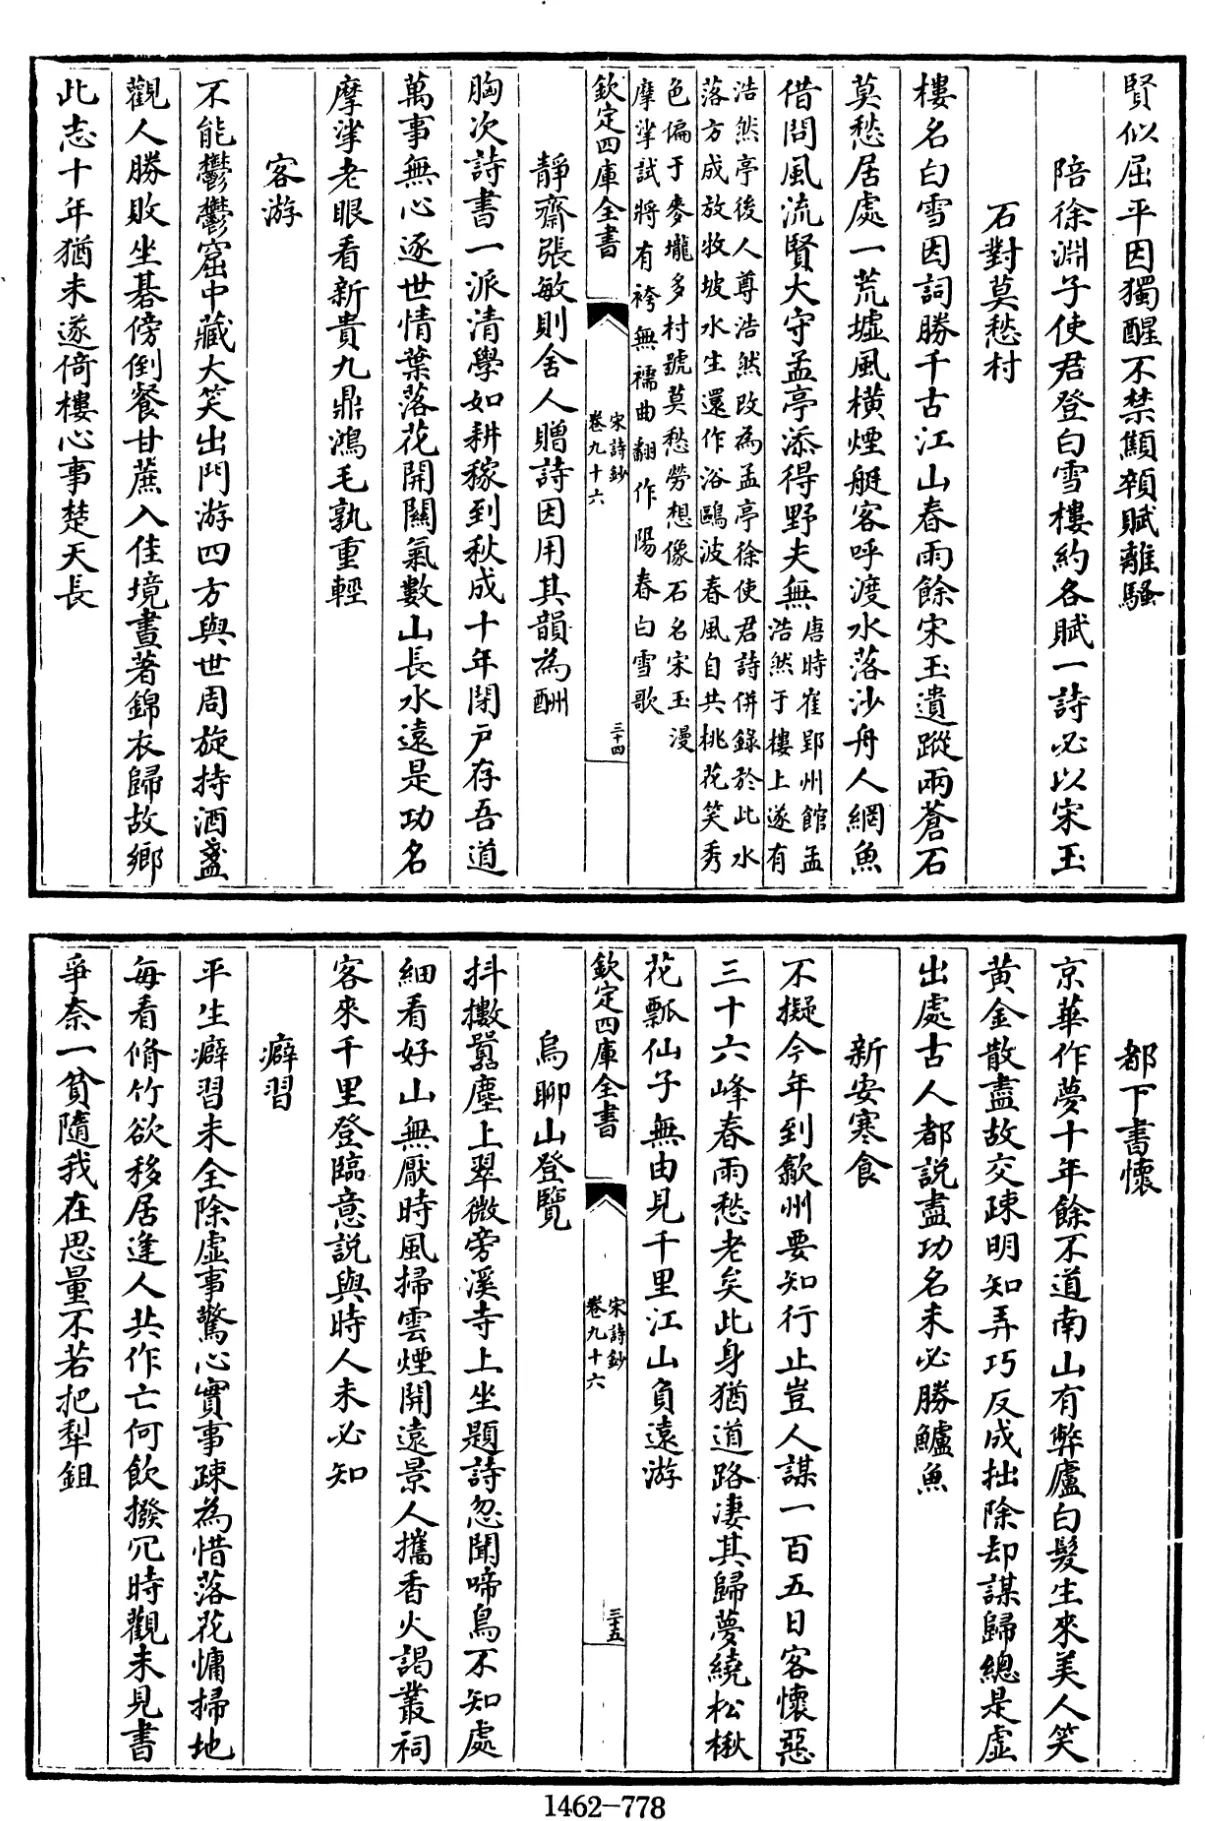 賢似屈平因獨醒不禁顦顇賦離騷
陪徐淵子使君登白雪樓約各賦一詩必以宋玉
石對莫愁村
樓名白雪因詞勝千古江山春雨餘宋玉遺蹤兩蒼石
莫愁居處一荒墟風橫煙艇客呼渡水落沙舟人網魚
借問風流賢大守孟亭添得野夫無
唐時崔郢州館孟
浩然于樓上遂有
浩然亭後人尊浩然改為孟亭徐使君詩併錄於此水
落方成放牧坡水生還作浴鷗波春風自共桃花笑秀
色偏于麥壠多村號莫愁勞想像石名宋玉漫
摩挲試將有袴無襦曲翻作陽春白雪歌
欽定四庫全書
宋詩鈔
卷九十六
三十四
靜齋張敏則舍人贈詩因用其韻為酬
胸次詩書一派清學如耕稼到秋成十年閉戸存吾道
萬事無心逐世情葉落花開關氣數山長水遠是功名
摩挲老眼看新貴九鼎鴻毛孰重輕
客游
不能鬱鬱窟中藏大笑出門游四方與世周旋持酒盞
觀人勝敗坐碁傍倒餐甘蔗入佳境晝著錦衣歸故鄉
此志十年猶未遂倚樓心事楚天長
都下書懷
京華作夢十年餘不道南山有弊廬白髮生來美人笑
黃金散盡故交疎明知弄巧反成拙除却謀歸總是虛
出處古人都說盡功名未必勝鱸魚
新安寒食
不擬今年到歙州要知行止豈人謀一百五日客懷惡
三十六峰春雨愁老矣此身猶道路淒其歸夢繞松楸
花瓢仙子無由見千里江山負遠游
欽定四庫全書
宋詩鈔
卷九十六
三十五
烏聊山登覽
抖擻囂塵上翠微旁溪寺上坐題詩忽聞啼鳥不知處
細看好山無厭時風掃雲煙開遠景人攜香火謁叢祠
客來千里登臨意說與時人未必知
癖習
平生癖習未全除虛事驚心實事疎為惜落花慵掃地
每看脩竹欲移居逢人共作亡何飲撥冗時觀未見書
爭奈一貧隨我在思量不若把犁鉏
1462-778